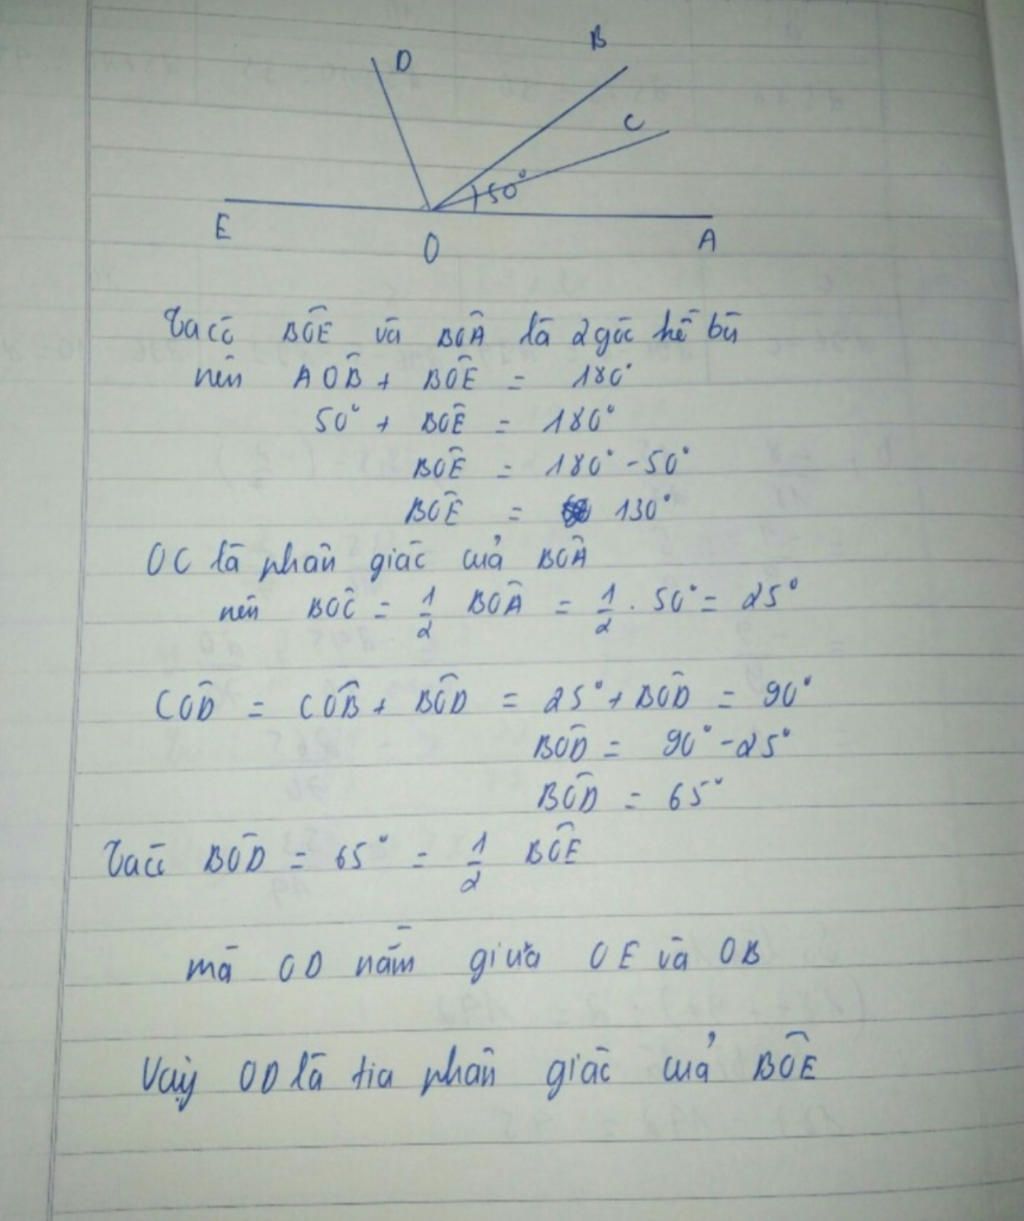 D
B
C
50°
E
O
A
Ta có BÔE và BÔA là 2 góc kề bù
nên AÔB + BÔE = 180°
50° + BÔE = 180°
BÔE = 180° - 50°
BÔE = 130°
OC là phân giác của BÔA
nên BÔC = 1/2 BÔA = 1/2 . 50° = 25°
CÔD = CÔB + BÔD = 25° + BÔD = 90°
BÔD = 90° - 25°
BÔD = 65°
Ta có BÔD = 65° = 1/2 BÔE
mà OD nằm giữa OE và OB
Vậy OD là tia phân giác của BÔE